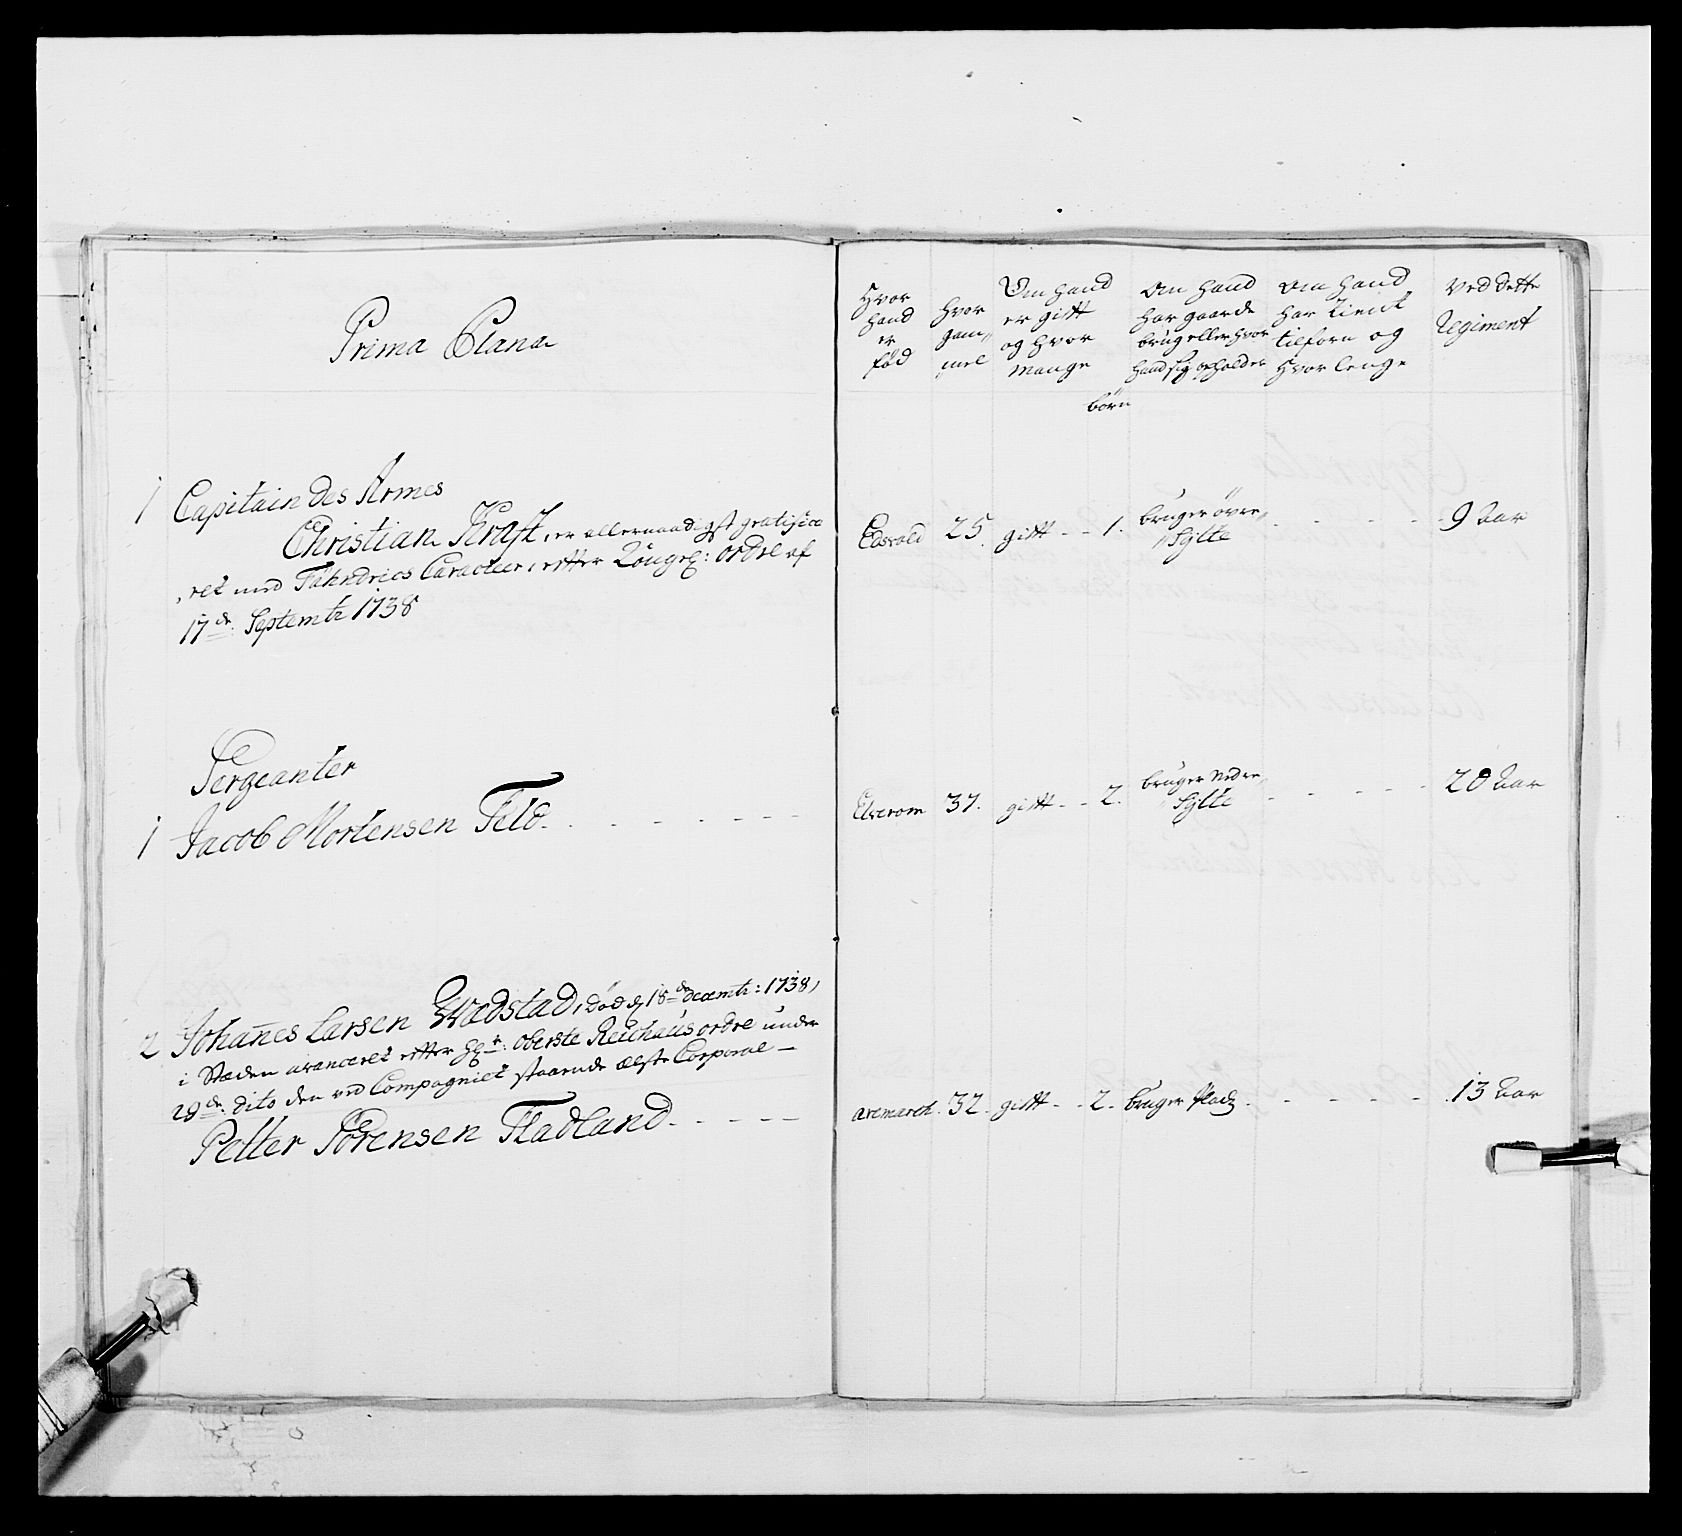 Prima Plana
1 Capitain des Armes
Christian Krafft, er allernaadigst gratifice
ret med Fähndrics Caracteer, efter Kongel: ordre af
17de Septembr 1738
Sergeanter
1 Jacob Mortensen Feld
2 Johanes Larsen Wadstad, død d 18de decembr: 1738,
i Stæden avanceret efter Hr: Oberste Reichaus ordre under
29de: dito den ved Compagniet staaende ælste Corporal
Petter Sörensen Fladland
Hvor hand er fød
hvor gammel
Om hand er gift og hvor mange börn
Om hand har gaarde brug eller hvor hand sig opholder
Om hand har tient tilforn og hvor lenge
Ved dette Regiment
Edsvold 25. gift 1. bruger övre Sylte 9 Aar
Elverom 37. gift 2. bruger Nedre Sylte 20 Aar
aremarck. 32. gift 2. bruger Plads 13 Aar